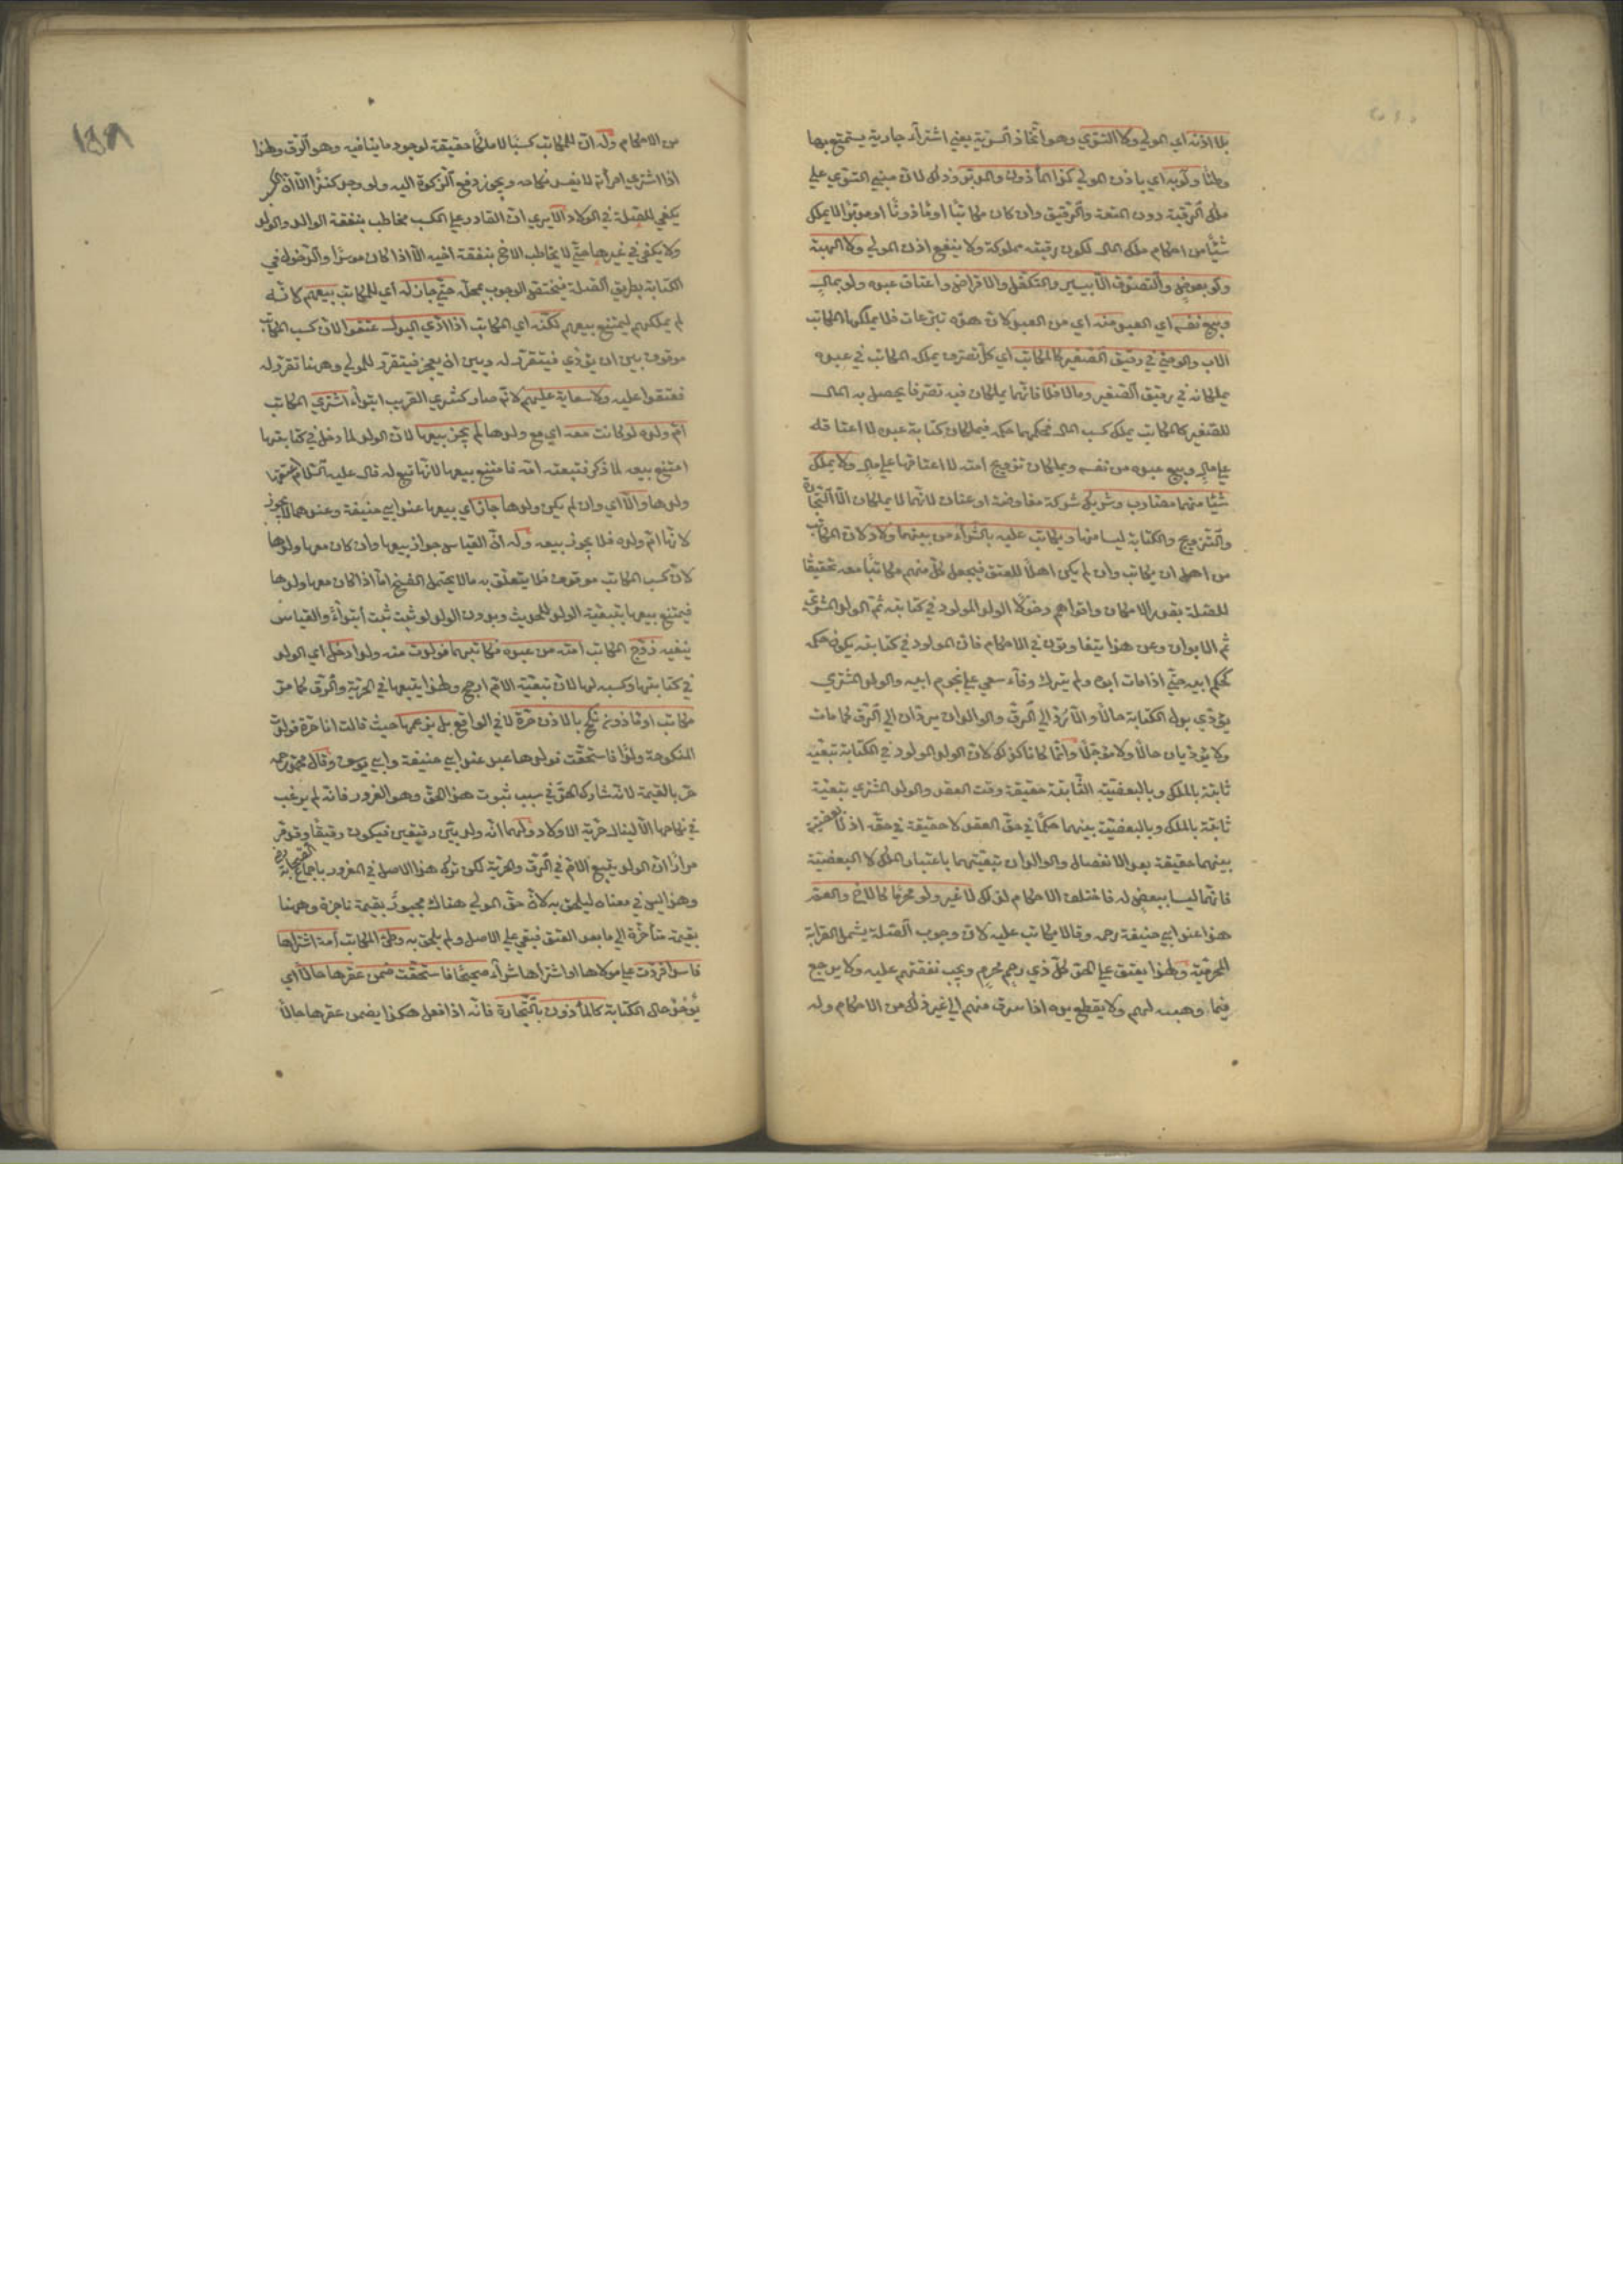 بلا اذنه اي المولي ولا التسري وهو اتخاذ السرية يعني اشتراء جارية يستمتع بها
وطئا ولو به اي باذن المولي كذا المأذون والمدبر وذلك لان مبني التسري علي
ملك الرقبة دون المتعة والرقيق وان كان مكاتبا او مأذونا او مدبرا لا يملك
شيئا من احكام ملك المال لكون رقبته مملوكة ولا ينفع اذن المولي ولا الهبة
ولو بعوض والتصدق الا بيسير والتكفل والاقراض واعتاق عبده ولو بمال
وبيع نفسه اي العبد منه اي من العبد لان هذه تبرعات فلا يملكها المكاتب
الاب والوصي في رقيق الصغير كالمكاتب اي كل تصرف يملك المكاتب في عبده
يملكانه في رقيق الصغير وما لا فلا فانهما يملكان فيه تصرفا يحصل به المال
للصغير كالمكاتب يملك كسب المال فحكمهما حكمه فيملكان كتابة عبده لا اعتاقه
علي مال وبيع عبده من نفسه ويملكان تزويج امته لا اعتاقها علي مال ولا يملك
شيئا منهما مضارب وشريك شركة مفاوضة او عنان لانهما لا يملكان الا التجارة
والتزويج والكتابة ليسا منها ويكاتب عليه بالشراء من بينهما ولاد لان المكاتب
من اهل ان يكاتب وان لم يكن اهلا للعتق فيجعل كل منهم مكاتبا معه تحقيقا
للصلة بقدر الامكان واقواهم دخولا الولد المولود في كتابته ثم الولد المشتري
ثم الابوان وعن هذا يتفاوتون في الاحكام فان المولود في كتابته يكون حكمه
كحكم ابيه حتي اذا مات ابوه ولم يترك وفاء سعي علي نجوم ابيه والولد المشتري
يؤدي بدل الكتابة حالا والا رد الي الرق والوالدان يردان الي الرق كما مات
ولا يؤديان حالا ولا مؤجلا وانما كانا كذلك لان الولد المولود في الكتابة تبعيته
ثابتة بالملك وبالبعضية الثابتة حقيقة وقت العقد والولد المشتري تبعيته
ثابتة بالملك وبالبعضية بينهما حكما في حق العقد لا حقيقة في حقه اذ لا بعضية
بينهما حقيقة بعد الانفصال والوالدان تبعيتهما باعتبار الملك لا البعضية
فانهما ليسا ببعض له فاختلف الاحكام لذلك لا غير ولو محرما كالاخ والعم
هذا عند ابي حنيفة رحمه وقالا يكاتب عليه لان وجوب الصلة يشمل القرابة
المحرمية ولهذا يعتق علي الحر كل ذي رحم محرم ويجب نفقتهم عليه ولا يرجع
فيما وهبه لهم ولا يقطع يده اذا سرق منهم الي غير ذلك من الاحكام وله
١٤٨
من الاحكام وله ان للمكاتب كسبا لا ملكا حقيقة لوجود ما ينافيه وهو الرق ولهذا
اذا اشتري امرأته لا يفسد نكاحه ويجوز دفع الزكوة اليه ولو وجد كنزا الا ان الكسب
يكفي للصلة في الولاد الا يري ان القادر علي الكسب مخاطب بنفقة الوالد والولد
ولا يكفي في غيرها حتي لا يخاطب الاخ بنفقة اخيه الا اذا كان موسرا والدخول في
الكتابة بطريق الصلة فيختص الوجوب بمحله حتي جاز له اي للمكاتب بيعهم لانه
لم يملكهم ليمتنع بيعهم لكنه اي المكاتب اذا ادي البدل عتقوا لان كسب المكاتب
موقوف بين ان يؤدي فيتقرر له وبين ان يعجز فيتقرر للمولي وههنا تقرر له
فعتقوا عليه ولا سعاية عليهم لانه صار كشري القريب ابتداء اشتري المكاتب
ام ولده لو كانت معه اي مع ولدها لم يجز بيعها لان الولد لما دخل في كتابتها
امتنع بيعه لما ذكر فتبعته امه فامتنع بيعها لانها تبع له قال عليه السلام اعتقها
ولدها والا اي وان لم يكن ولدها جاز اي بيعها عند ابي حنيفة وعندهما لا يجوز
لانها ام ولده فلا يجوز بيعه وله ان القياس جواز بيعها وان كان معها ولدها
لان كسب المكاتب موقوف فلا يتعلق به ما لا يحتمل الفسخ اما اذا كان معها ولدها
فيمتنع بيعها بتبعية الولد للحديث وبدون الولد لو ثبت ثبت ابتداء والقياس
ينفيه زوج المكاتب امته من عبده فكاتبهما فولدت منه ولدا دخل اي الولد
في كتابتها وكسبه لها لان تبعية الام ارجح ولهذا يتبعها في الحرية والرق كما مر
مكاتب او مأذون نكح بالاذن حرة لا في الواقع بل بزعمها حيث قالت انا حرة فولدت
المنكوحة ولدا فاستحقت فولدها عبد عند ابي حنيفة وابي يوسف وقال محمد رحمه
حر بالقيمة لانه شارك الحر في سبب ثبوت هذا الحق وهو الغرور فانه لم يرغب
في نكاحها الا لينال حرية الاولاد ولهما انه ولد بين رقيقين فيكون رقيقا وقد مر
مرارا ان الولد يتبع الام في الرق والحرية لكن ترك هذا الاصل في المغرور باجماع الصحابة رض
وهذا ليس في معناه ليلحق به لان حق المولي هناك مجبور بقيمة ناجزة وههنا
بقيمة متأخرة الي ما بعد العتق فبقي علي الاصل ولم يلحق به وطئ المكاتب امة اشتراها
فاسدا فردت علي مولاها او اشتراها شراء صحيحا فاستحقت ضمن عقرها حالا اي
يؤخذ حال الكتابة كالمأذون بالتجارة فانه اذا فعل هكذا يضمن عقرها حالا